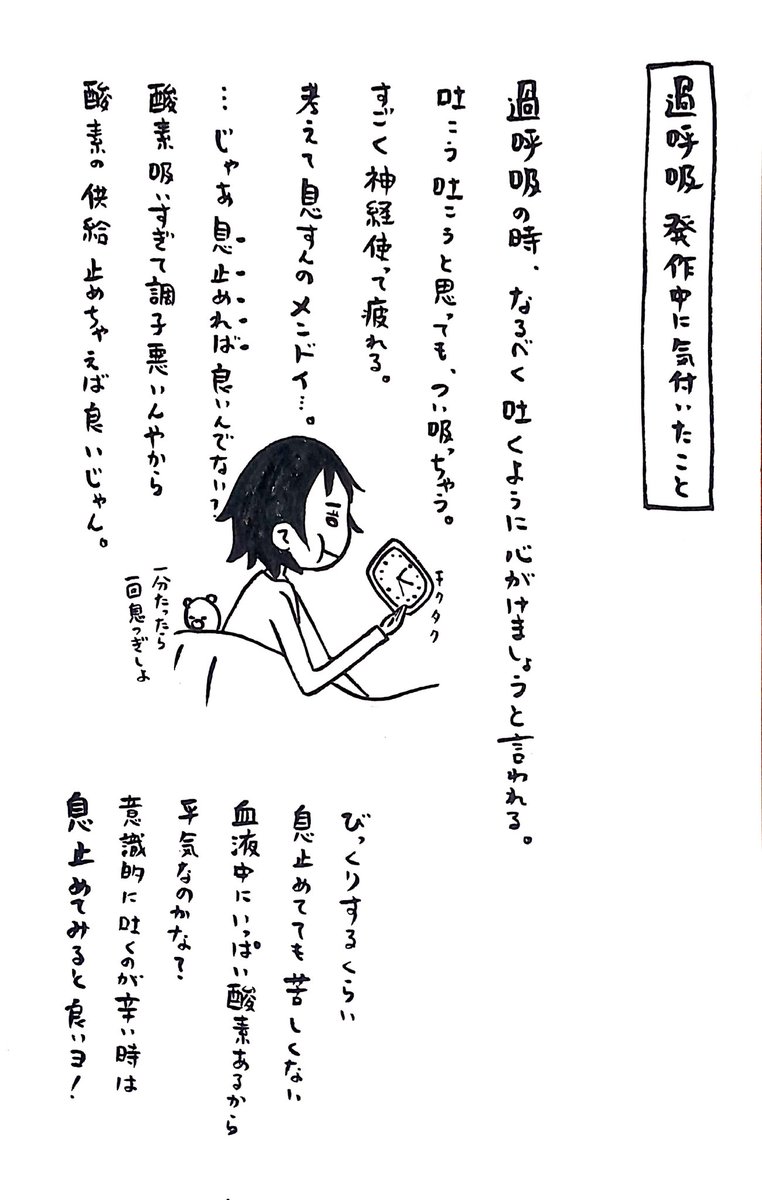 過呼吸 発作中に気付いたこと
過呼吸の時、なるべく吐くように心がけましょうと言われる。
吐こう吐こうと思っても、つい吸っちゃう。
すごく神経使って疲れる。
考えて息すんのメンドイ…。
…じゃあ息止めれば良いんでない？
酸素吸いすぎて調子悪いんやから
酸素の供給止めちゃえば良いじゃん。
チクタク
一分たったら
一回息つぎしよ
びっくりするくらい
息止めてても苦しくない
血液中にいっぱい酸素あるから
平気なのかな？
意識的に吐くのが辛い時は
息止めてみると良いヨ！